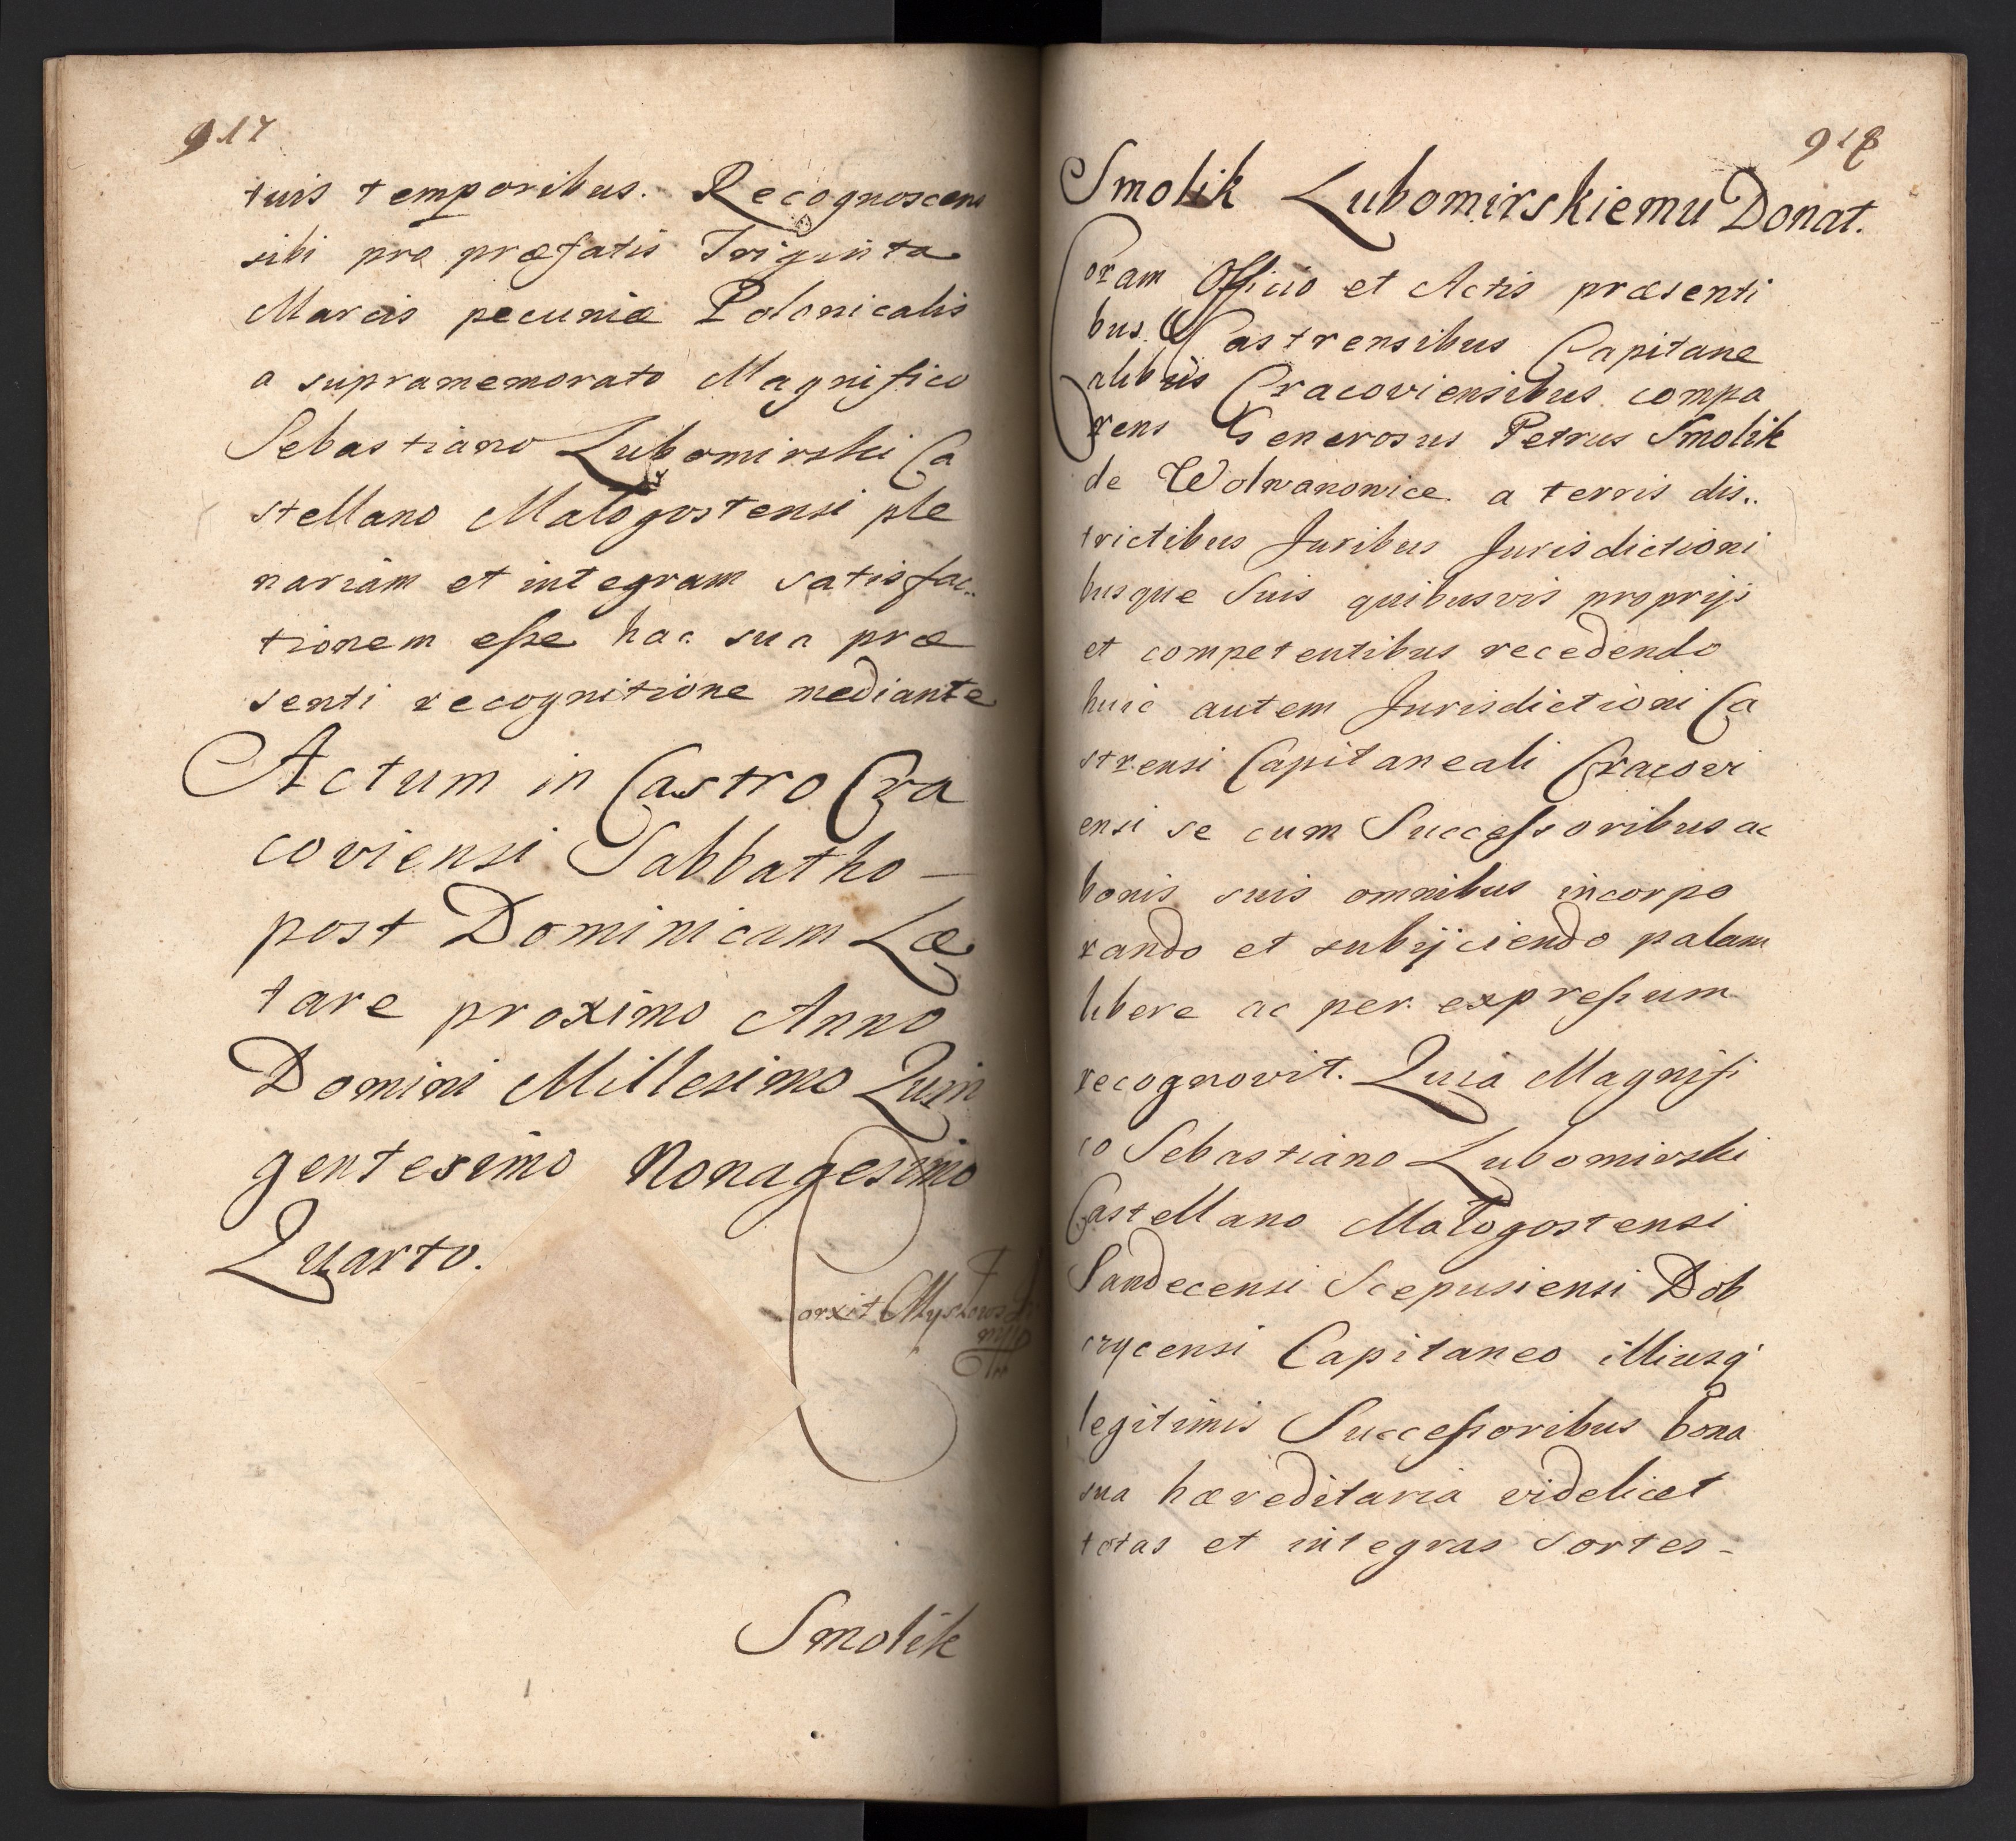 917
tuis temporibus. Recognoscens
sibi pro præfatis Triginta
Marcis pecuniæ Polonicalis
a supramemorato Magnifico
Sebastiano Lubomirski Ca
stellano Małogostensi ple
nariam et integram satisfac..
tionem esse hac sua præ
senti recognitione mediante
Actum in Castro Cra
coviensi Sabbatho —
post Dominicam Læ
tare proximo Anno
Domini Millesimo Quin
gentesimo Nonagesimo
Quarto.
Smolik
918
Smolik Lubomirskiemu Donat.
Coram Officio et Actis præsenti
bus Castrensibus Capitane
alibus Cracoviensibus compa
rens Generosus Petrus Smolik
de Wolwanowice a terris dis..
trictibus Juribus Jurisdictioni
busque Suis quibusvis proprijs
et competentibus recedendo
huic autem Jurisdictioni Ca
strensi Capitaneali Cracovi
ensi se cum Successoribus ac
bonis suis omnibus incorpo
rando et subijciendo palam
libere ac per expressum
recognovit. Quia Magnifi
co Sebastiano Lubomirski
Castellano Małogostensi
Sandecensi Scepusiensi Dob
czycensi Capitaneo illiusq
legitimis Successoribus bona
sua hæreditaria videlicet
totas et integras sortes -